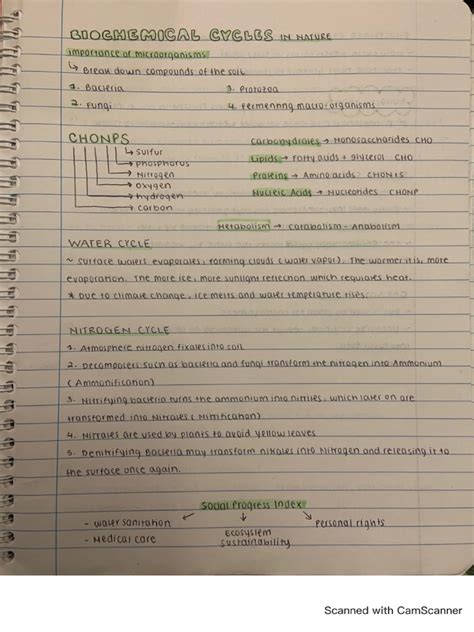 BIOCHEMICAL CYCLES IN NATURE
importance of microorganisms
↳ Break down compounds of the soil
1. Bacteria 3. Protozoa
2. Fungi 4. Fermenting macro-organisms
CHONPS
→ Sulfur
→ Phosphorus
→ Nitrogen
→ Oxygen
→ hydrogen
→ carbon
Carbohydrates → Monosaccharides CHO
Lipids → Fatty acids + glycerol CHO
Proteins → Amino acids CHONS
Nucleic Acids → Nucleotides CHONP
Metabolism → Catabolism - Anabolism
WATER CYCLE
~ Surface waters evaporates, forming clouds (water vapor). The warmer it is, more
evaporation. The more ice, more sunlight reflection which regulates heat.
* Due to climate change, ice melts and water temperature rises.
NITROGEN CYCLE
1. Atmosphere nitrogen fixates into soil
2. Decomposers such as bacteria and fungi transform the nitrogen into Ammonium
(Ammonification)
3. Nitrifying bacteria turns the ammonium into nitrites, which later on are
transformed into Nitrates (Nitrification)
4. Nitrates are used by plants to avoid yellow leaves
5. Denitrifying Bacteria may transform nitrates into Nitrogen and releasing it to
the surface once again.
Social Progress Index
- water sanitation
- Medical care
Ecosystem
sustainability
Personal rights
Scanned with CamScanner